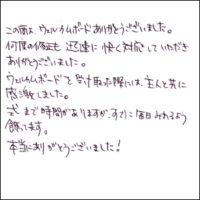 この度は、ウェルカムボードありがとうございました。
何度の修正も 迅速に 快く対応 して いただき
ありがとうございました。
ウェルカムボードを受け取った際には、主人と共に
感激しました。
式 まで時間がありますが、すでに 毎日 みれるよう
飾ってます。
本当にありがとうございました!